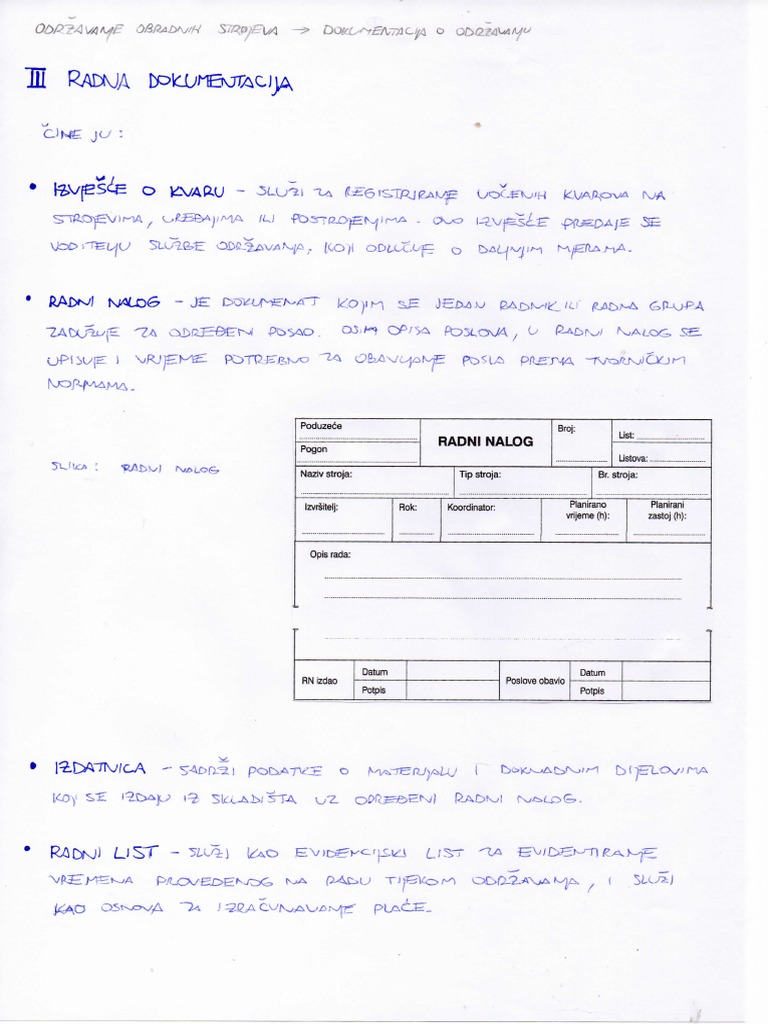 ODRŽAVANJE OBRADNIH STROJEVA → DOKUMENTACIJA O ODRŽAVANJU
III RADNA DOKUMENTACIJA
ČINE JU :
• IZVJEŠĆE O KVARU – SLUŽI ZA REGISTRIRANJE UOČENIH KVAROVA NA
STROJEVIMA, UREĐAJIMA ILI POSTROJENJIMA. OVO IZVJEŠĆE PREDAJE SE
VODITELJU SLUŽBE ODRŽAVANJA, KOJI ODLUČUJE O DALJNJIM MJERAMA.
• RADNI NALOG – JE DOKUMENAT KOJIM SE JEDAN RADNIK ILI RADNA GRUPA
ZADUŽUJE ZA ODREĐENI POSAO. OSIM OPISA POSLOVA, U RADNI NALOG SE
UPISUJE I VRIJEME POTREBNO ZA OBAVLJANJE POSLA PREMA TVORNIČKIM
NORMAMA.
SLIKA : RADNI NALOG
Poduzeće
Pogon
RADNI NALOG
Broj:
List:
Listova:
Naziv stroja:
Tip stroja:
Br. stroja:
Izvršitelj:
Rok:
Koordinator:
Planirano
vrijeme (h):
Planirani
zastoj (h):
Opis rada:
RN izdao
Datum
Potpis
Poslove obavio
Datum
Potpis
• IZDATNICA – SADRŽI PODATKE O MATERIJALU I DOKNADNIM DIJELOVIMA
KOJI SE IZDAJU IZ SKLADIŠTA UZ ODREĐENI RADNI NALOG.
• RADNI LIST – SLUŽI KAO EVIDENCIJSKI LIST ZA EVIDENTIRANJE
VREMENA PROVEDENOG NA RADU TIJEKOM ODRŽAVANJA, I SLUŽI
KAO OSNOVA ZA IZRAČUNAVANJE PLAĆE.